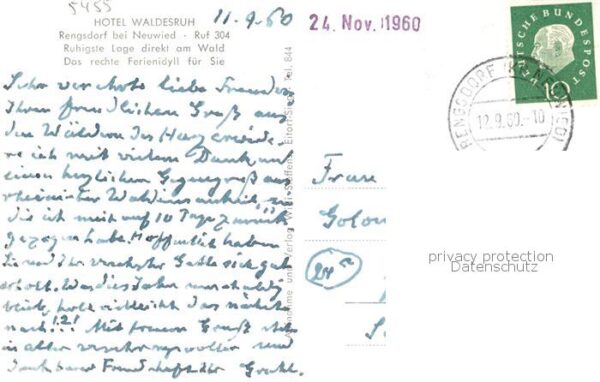 5455
HOTEL WALDESRUH
Rengsdorf bei Neuwied - Ruf 304
Ruhigste Lage direkt am Wald
Das rechte Ferienidyll für Sie
11.9.60
24. Nov. 1960
DEUTSCHE BUNDESPOST
10
RENGSDORF (KR NEUWIED)
12.9.60.-10
Sehr verehrte liebe Freunde,
Ihren freundlichen Gruß aus
den Wäldern des Harz erwide-
re ich mit vielem Dank und
einem herzlichen Gegengruß aus
rheinischer Waldeinsamkeit, in
die ich mich auf 10 Tage zurück
gezogen habe. Hoffentlich haben
Sie und Ihr verehrter Gatte sich gut
erholt. Was dies Jahr uns schuldig
blieb, holt vielleicht das nächste
nach!?! Mit frohem Gruß stets
in alter verehrungsvoller und
dankbarer Freundschaft Ihr
Aufnahme und Verlag Willi Steffens, Eitorf/Sieg Tel. 844
Frau
privacy protection
Datenschutz